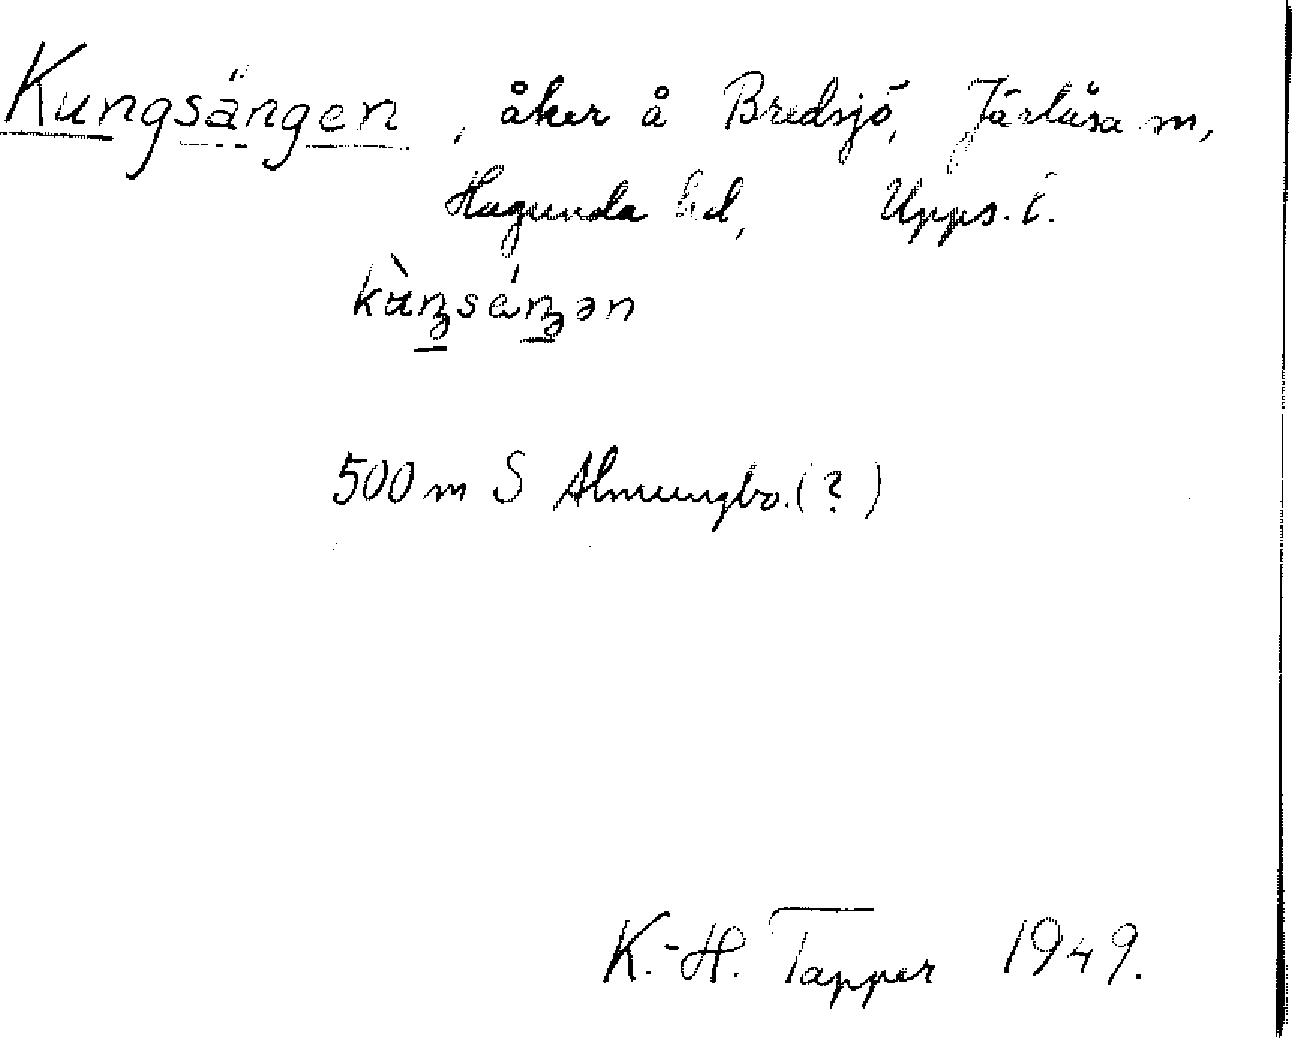 Kungsängen, åker å Bredsjö, Järlåsa sn,
Hagunda hd, Upps. l.
kùŋséŋən
500 m S Almungbo. (?)
K.-H. Tapper 1949.